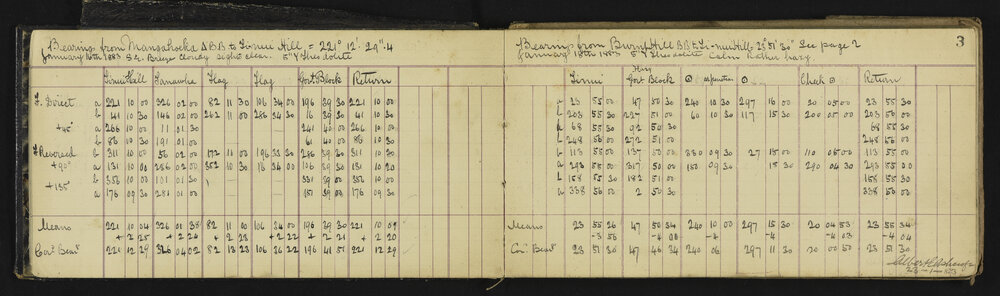 3
Bearing from Mangahocka △ BB to Tinui Hill = 221° 12' 29"·4
January 16th 1883 S.E. Breeze cloudy sights clear. 5" Y Theodolite
Tinui Hall Flag Flag Govt Block Return
F. Direct a 221 10 00 326 02 00 82 11 30 106 34 00 196 39 30 221 10 00
b 41 10 30 146 02 00 262 11 00 286 34 30 16 39 30 41 10 30
+45° a 266 10 00 11 01 30 241 40 00 266 10 00
b 86 10 30 191 01 00 61 40 00 86 10 30
F Reversed b 311 10 00 56 02 00 172 11 00 196 33 30 286 39 30 311 10 30
+90° a 131 10 00 236 02 00 352 10 30 16 34 00 106 39 30 131 10 20
+135° b 356 10 00 101 01 30 331 39 00 356 10 00
a 176 09 30 281 01 00 151 39 00 176 09 30
Means 221 10 04 326 01 38 82 11 00 106 34 00 196 39 30 221 10 09
+ 2 25 + 2 24 + 2 23 + 2 22 + 2 21 + 2 20
Cor.d Bear.g 221 12 29 326 04 02 82 13 23 106 36 22 196 41 51 221 12 29
Bearing from Burnt Hill BB to Tinui Hill 23° 51' 30" See page 2
January 18th 1883 5" Y Theodolite Calm Rather hazy
Tinui Flag Govt Block ⊙ ⊙ Check ⊙ Return
a 23 55 00 47 50 30 240 10 30 297 16 00 20 05 00 23 55 30
b 203 55 30 227 51 00 60 10 30 117 15 30 200 05 00 203 56 00
a 68 55 30 92 50 30 68 55 30
b 248 56 00 272 51 00 248 56 00
b 113 55 00 137 00 00 330 09 30 27 15 00 110 05 00 113 55 00
a 293 55 00 317 50 00 150 09 30 15 30 290 04 30 293 55 00
b 158 55 30 182 51 00 158 55 30
a 338 56 00 2 50 30 338 56 00
Means 23 55 26 47 50 34 240 10 00 297 15 30 20 04 53 23 55 34
-3 56 -4 00 -4 -4 -4 03 -4 04
Cor. Bear.g 23 51 30 47 46 34 240 06 297 11 30 20 00 50 23 51 30